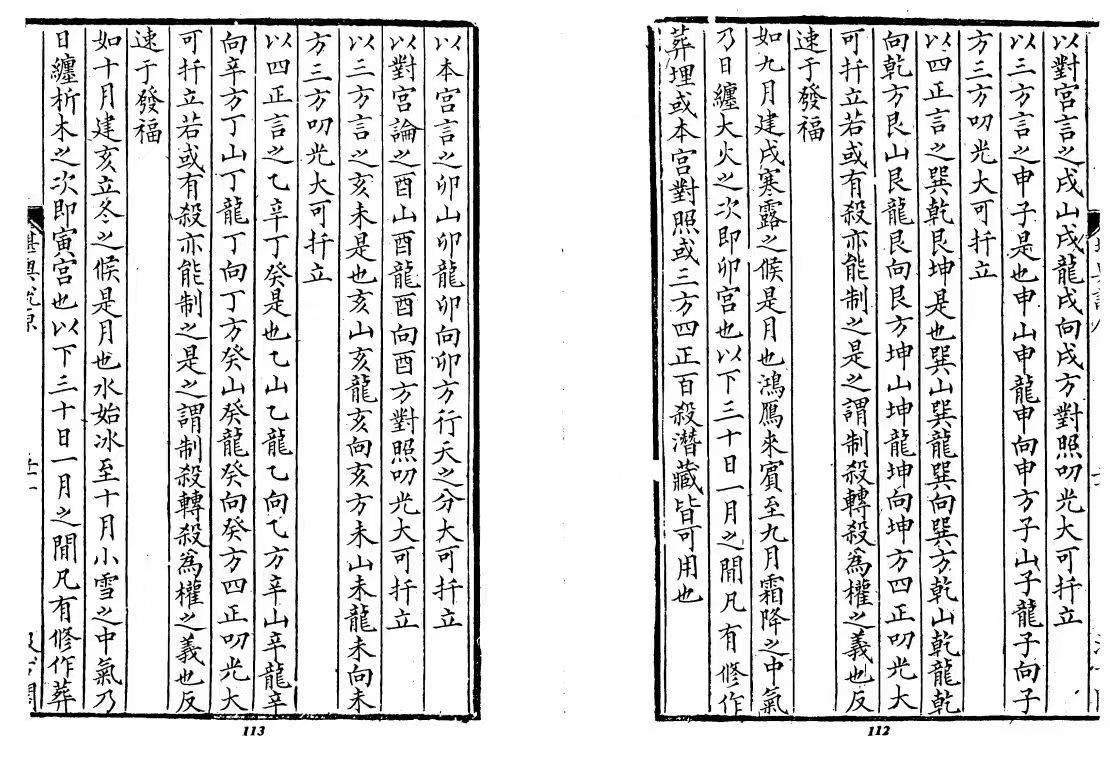 以對宮言之戌山戌龍戌向戌方對照叨光大可扦立
以三方言之申子是也申山申龍申向申方子山子龍子向子
方三方叨光大可扦立
以四正言之巽乾艮坤是也巽山巽龍巽向巽方乾山乾龍乾
向乾方艮山艮龍艮向艮方坤山坤龍坤向坤方四正叨光大
可扦立若或有殺亦能制之是之謂制殺轉殺為權之義也反
速于發福
如九月建戌寒露之候是月也鴻鴈來賓至九月霜降之中氣
乃日纏大火之次即卯宮也以下三十日一月之間凡有修作
葬埋或本宮對照或三方四正百殺潛藏皆可用也
112
以本宮言之卯山卯龍卯向卯方行天之分大可扦立
以對宮論之酉山酉龍酉向酉方對照叨光大可扦立
以三方言之亥未是也亥山亥龍亥向亥方未山未龍未向未
方三方叨光大可扦立
以四正言之乙辛丁癸是也乙山乙龍乙向乙方辛山辛龍辛
向辛方丁山丁龍丁向丁方癸山癸龍癸向癸方四正叨光大
可扦立若或有殺亦能制之是之謂制殺轉殺為權之義也反
速于發福
如十月建亥立冬之候是月也水始冰至十月小雪之中氣乃
日纏析木之次即寅宮也以下三十日一月之間凡有修作葬
113